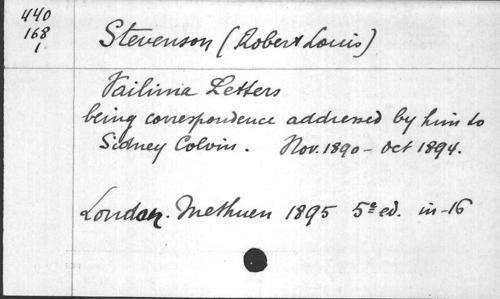 440
168
1
Stevenson (Robert Louis)
Vailima Letters
being correspondence addressed by him to
Sidney Colvin. Nov. 1890 - Oct 1894.
London. Methuen 1895 5e ed. in-16